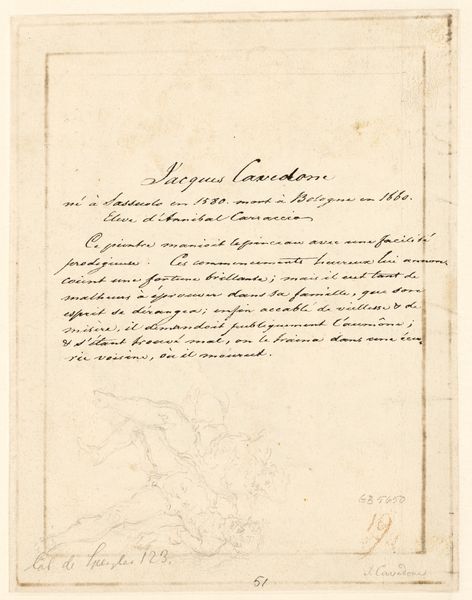 Jacques Cavedone
né à Sassuolo en 1580. mort à Bologne en 1660.
Eleve d'Annibal Carraccio
Ce peintre manioit le pinceau avec une facilité
prodigieuse. Ces commencements heureux lui annon-
coient une fortune brillante; mais il eut tant de
malheurs à éprouver dans sa famille, que son
esprit se dérangea; enfin accablé de viellesse & de
misère, il demandoit publiquement l'aumône;
& s'étant trouvé mal, on le traina dans une écu-
rie voisine, où il mourut.
GB 5650
19
Cab de 123.
51
J. Cavedone